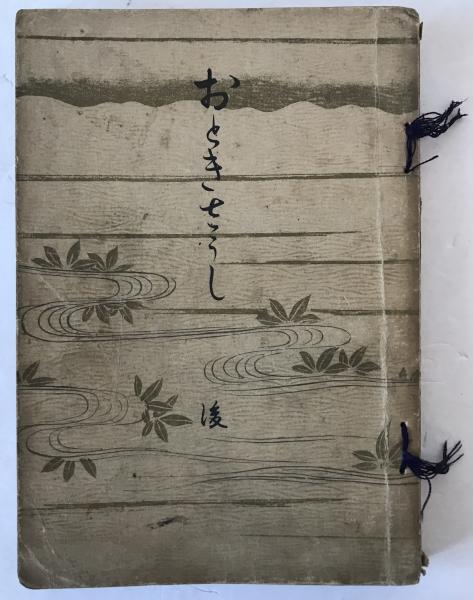 おときさうし
後